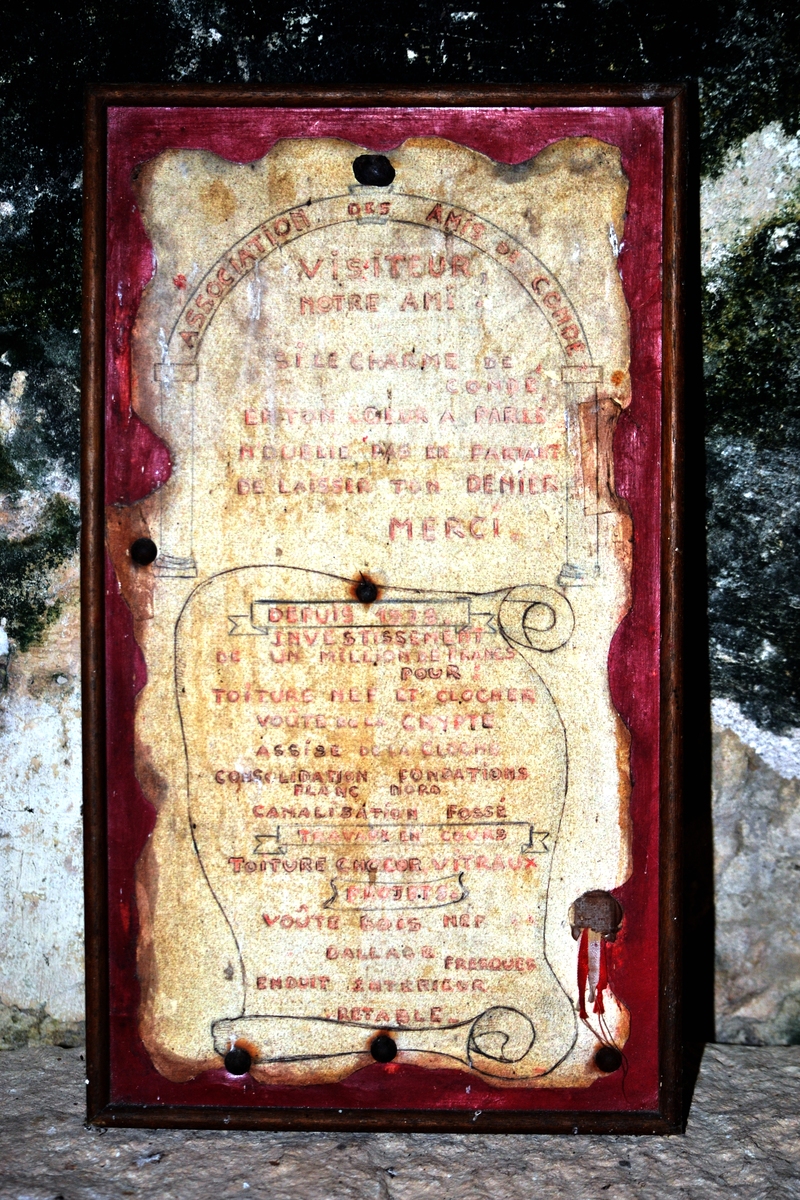 ASSOCIATION DES AMIS DE CONDÉ
VISITEUR
NOTRE AMI
SI LE CHARME DE
CONDÉ
EN TON CŒUR A PARLÉ
N'OUBLIE PAS EN PARTANT
DE LAISSER TON DENIER
MERCI.
DEPUIS 1978
INVESTISSEMENT
DE UN MILLION DE FRANCS
POUR :
TOITURE NEF ET CLOCHER
VOUTE DE LA CRYPTE
ASSISE DE LA CLOCHE
CONSOLIDATION FONDATIONS
FLANC NORD
CANALISATION FOSSÉ
TRAVAUX EN COURS
TOITURE CHŒUR VITRAUX
PROJETS
VOÛTE BOIS NEF
DALLAGE
FRESQUES
ENDUIT INTÉRIEUR
RETABLE